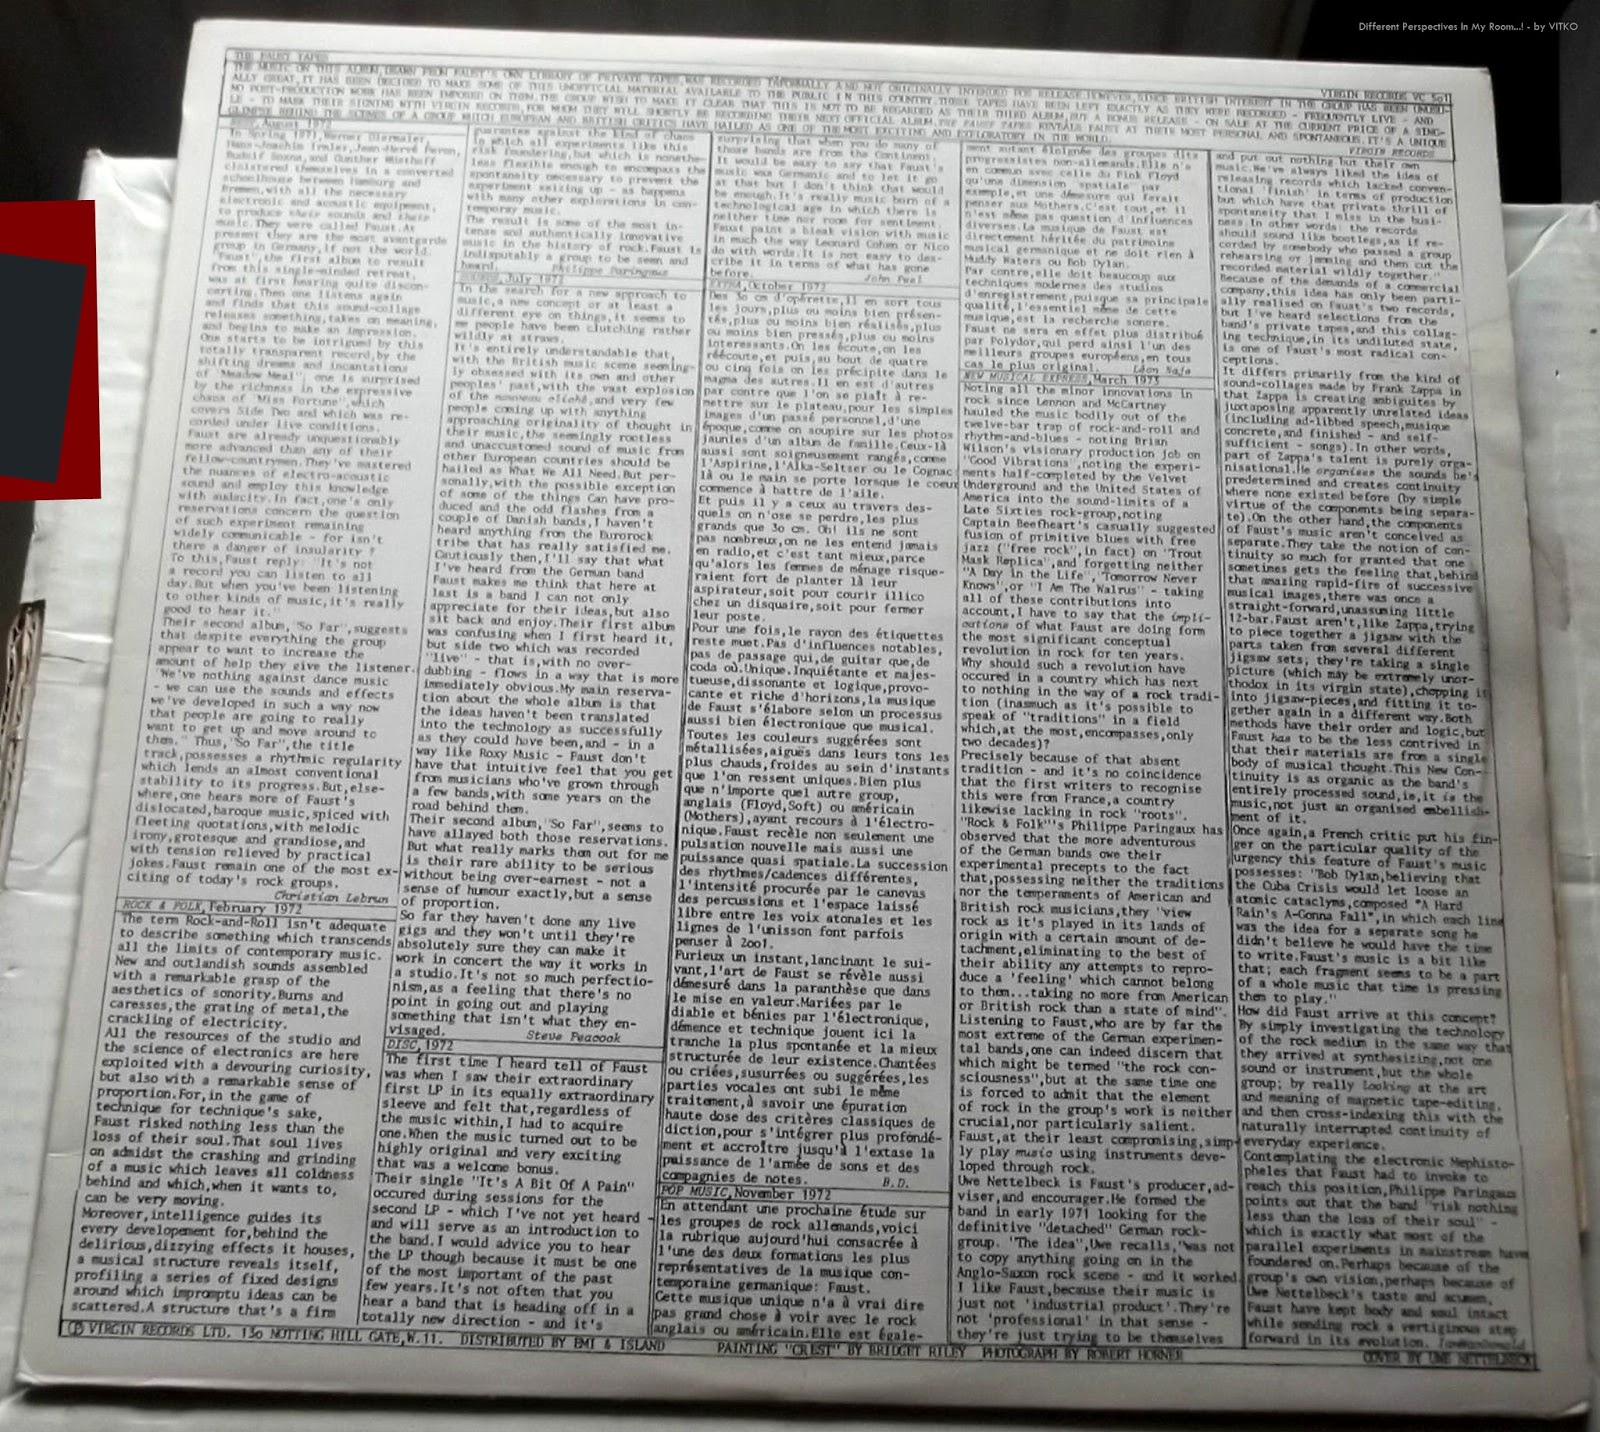 Different Perspectives In My Room...! - by VITKO
THE FAUST TAPES
VIRGIN RECORDS VC 501
THE MUSIC ON THIS ALBUM, DRAWN FROM FAUST'S OWN LIBRARY OF PRIVATE TAPES, WAS RECORDED INFORMALLY AND NOT ORIGINALLY INTENDED FOR RELEASE. HOWEVER, SINCE BRITISH INTEREST IN THE GROUP HAS BEEN UNUSU-
ALLY GREAT, IT HAS BEEN DECIDED TO MAKE SOME OF THIS UNOFFICIAL MATERIAL AVAILABLE TO THE PUBLIC IN THIS COUNTRY. THESE TAPES HAVE BEEN LEFT EXACTLY AS THEY WERE RECORDED - FREQUENTLY LIVE - AND
NO POST-PRODUCTION WORK HAS BEEN IMPOSED ON THEM. THE GROUP WISH TO MAKE IT CLEAR THAT THIS IS NOT TO BE REGARDED AS THEIR THIRD ALBUM, BUT A BONUS RELEASE - ON SALE AT THE CURRENT PRICE OF A SING-
LE - TO MARK THEIR SIGNING WITH VIRGIN RECORDS, FOR WHOM THEY WILL SHORTLY BE RECORDING THEIR NEXT OFFICIAL ALBUM. THE FAUST TAPES REVEALS FAUST AT THEIR MOST PERSONAL AND SPONTANEOUS. IT'S A UNIQUE
GLIMPSE BEHIND THE SCENES OF A GROUP WHICH EUROPEAN AND BRITISH CRITICS HAVE HAILED AS ONE OF THE MOST EXCITING AND EXPLORATORY IN THE WORLD.
VIRGIN RECORDS
August 1972
In Spring 1971, Werner Diermaier,
Hans-Joachim Irmler, Jean-Hervé Peron,
Rudolf Sosna, and Gunther Wüsthoff
cloistered themselves in a converted
schoolhouse between Hamburg and
Bremen, with all the necessary
electronic and acoustic equipment,
to produce their sounds and their
music. They were called Faust. At
present they are the most avantgarde
group in Germany, if not the world.
"Faust", the first album to result
from this single-minded retreat,
was at first hearing quite discon-
certing. Then one listens again
and finds that this sound-collage
releases something, takes on meaning,
and begins to make an impression.
One starts to be intrigued by this
totally transparent record, by the
shifting dreams and incantations
of "Meadow Meal"; one is surprised
by the richness in the expressive
chaos of "Miss Fortune", which
covers Side Two and which was re-
corded under live conditions.
Faust are already unquestionably
more advanced than any of their
fellow-countrymen. They've mastered
the nuances of electro-acoustic
sound and employ this knowledge
with audacity. In fact, one's only
reservations concern the question
of such experiment remaining
widely communicable - for isn't
there a danger of insularity ?
To this, Faust reply: "It's not
a record you can listen to all
day. But when you've been listening
to other kinds of music, it's really
good to hear it."
Their second album, "So Far", suggests
that despite everything the group
appear to want to increase the
amount of help they give the listener.
"We've nothing against dance music
- we can use the sounds and effects
we've developed in such a way now
that people are going to really
want to get up and move around to
them." Thus, "So Far", the title
track, possesses a rhythmic regularity
which lends an almost conventional
stability to its progress. But, else-
where, one hears more of Faust's
dislocated, baroque music, spiced with
fleeting quotations, with melodic
irony, grotesque and grandiose, and
with tension relieved by practical
jokes. Faust remain one of the most ex-
citing of today's rock groups.
Christian Lebrun
ROCK & FOLK, February 1972
The term Rock-and-Roll isn't adequate
to describe something which transcends
all the limits of contemporary music.
New and outlandish sounds assembled
with a remarkable grasp of the
aesthetics of sonority. Burns and
caresses, the grating of metal, the
crackling of electricity.
All the resources of the studio and
the science of electronics are here
exploited with a devouring curiosity,
but also with a remarkable sense of
proportion. For, in the game of
technique for technique's sake,
Faust risked nothing less than the
loss of their soul. That soul lives
on admidst the crashing and grinding
of a music which leaves all coldness
behind and which, when it wants to,
can be very moving.
Moreover, intelligence guides its
every developement for, behind the
delirious, dizzying effects it houses,
a musical structure reveals itself,
profiling a series of fixed designs
around which impromptu ideas can be
scattered. A structure that's a firm
guarantee against the kind of chaos
in which all experiments like this
risk foundering, but which is nonethe-
less flexible enough to encompass the
spontaneity necessary to prevent the
experiment seizing up - as happens
with many other explorations in con-
temporary music.
The result is some of the most in-
tense and authentically innovative
music in the history of rock. Faust is
indisputably a group to be seen and
heard.
Philippe Paringaux
SOUNDS, July 1972
In the search for a new approach to
music, a new concept or at least a
different eye on things, it seems to
me people have been clutching rather
wildly at straws.
It's entirely understandable that,
with the British music scene seeming-
ly obsessed with its own and other
peoples' past, with the vast explosion
of the nouveau cliché, and very few
people coming up with anything
approaching originality of thought in
their music, the seemingly rootless
and unaccustomed sound of music from
other European countries should be
hailed as What We All Need. But per-
sonally, with the possible exception
of some of the things Can have pro-
duced and the odd flashes from a
couple of Danish bands, I haven't
heard anything from the Eurorock
tribe that has really satisfied me.
Cautiously then, I'll say that what
I've heard from the German band
Faust makes me think that here at
last is a band I can not only
appreciate for their ideas, but also
sit back and enjoy. Their first album
was confusing when I first heard it,
but side two which was recorded
"live" - that is, with no over-
dubbing - flows in a way that is more
immediately obvious. My main reserva-
tion about the whole album is that
the ideas haven't been translated
into the technology as successfully
as they could have been, and - in a
way like Roxy Music - Faust don't
have that intuitive feel that you get
from musicians who've grown through
a few bands, with some years on the
road behind them.
Their second album, "So Far", seems to
have allayed both those reservations.
But what really marks them out for me
is their rare ability to be serious
without being over-earnest - not a
sense of humour exactly, but a sense
of proportion.
So far they haven't done any live
gigs and they won't until they're
absolutely sure they can make it
work in concert the way it works in
a studio. It's not so much perfectio-
nism, as a feeling that there's no
point in going out and playing
something that isn't what they en-
visaged.
Steve Peacock
DISC, 1972
The first time I heard tell of Faust
was when I saw their extraordinary
first LP in its equally extraordinary
sleeve and felt that, regardless of
the music within, I had to acquire
one. When the music turned out to be
highly original and very exciting
that was a welcome bonus.
Their single "It's A Bit Of A Pain"
occured during sessions for the
second LP - which I've not yet heard -
and will serve as an introduction to
the band. I would advice you to hear
the LP though because it must be one
of the most important of the past
few years. It's not often that you
hear a band that is heading off in a
totally new direction - and it's
surprising that when you do many of
those bands are from the Continent.
It would be easy to say that Faust's
music was Germanic and to let it go
at that but I don't think that would
be enough. It's really music born of a
technological age in which there is
neither time nor room for sentiment.
Faust paint a bleak vision with music
in much the way Leonard Cohen or Nico
do with words. It is not easy to des-
cribe it in terms of what has gone
before.
John Peel
EXTRA, October 1972
Des 30 cm d'opérette, il en sort tous
les jours, plus ou moins bien présen-
tés, plus ou moins bien réalisés, plus
ou moins bien pressés, plus ou moins
interessants. On les écoute, on les
réécoute, et puis, au bout de quatre
ou cinq fois on les précipite dans le
magma des autres. Il en est d'autres
par contre que l'on se plaît à re-
mettre sur le plateau, pour les simples
images d'un passé personnel, d'une
époque, comme on soupire sur les photos
jaunies d'un album de famille. Ceux-là
aussi sont soigneusement rangés, comme
l'Aspirine, l'Alka-Seltzer ou le Cognac
là ou le main se porte lorsque le coeur
commence à battre de l'aile.
Et puis il y a ceux au travers des-
quels on n'ose se perdre, les plus
grands que 30 cm. Oh! ils ne sont
pas nombreux, on ne les entend jamais
en radio, et c'est tant mieux, parce
qu'alors les femmes de ménage risque-
raient fort de planter là leur
aspirateur, soit pour courir illico
chez un disquaire, soit pour fermer
leur poste.
Pour une fois, le rayon des étiquettes
reste muet. Pas d'influences notables,
pas de passage qui, de guitar que, de
coda où. Unique. Inquiétante et majes-
tueuse, dissonante et logique, provo-
cante et riche d'horizons, la musique
de Faust s'élabore selon un processus
aussi bien électronique que musical.
Toutes les couleurs suggérées sont
métallisées, aiguës dans leurs tons les
plus chauds, froides au sein d'instants
que l'on ressent uniques. Bien plus
que n'importe quel autre group,
anglais (Floyd, Soft) ou américain
(Mothers), ayant recours à l'électro-
nique. Faust recèle non seulement une
pulsation nouvelle mais aussi une
puissance quasi spatiale. La succession
des rhythmes/cadences différentes,
l'intensité procurée par le canevas
des percussions et l'espace laissé
libre entre les voix atonales et les
lignes de l'unisson font parfois
penser à 2001.
Furieux un instant, lancinant le sui-
vant, l'art de Faust se révèle aussi
démesuré dans la paranthèse que dans
le mise en valeur. Mariées par le
diable et bénies par l'électronique,
démence et technique jouent ici la
tranche la plus spontanée et la mieux
structurée de leur existence. Chantées
ou criées, susurrées ou suggérées, les
parties vocales ont subi le même
traitement, à savoir une épuration
haute dose des critères classiques de
diction, pour s'intégrer plus profondé-
ment et accroître jusqu'à l'extase la
puissance de l'armée de sons et des
compagnies de notes.
B.D.
POP MUSIC, November 1972
En attendant une prochaine étude sur
les groupes de rock allemands, voici
la rubrique aujourd'hui consacrée à
l'une des deux formations les plus
représentatives de la musique con-
temporaine germanique: Faust.
Cette musique unique n'a à vrai dire
pas grand chose à voir avec le rock
anglais ou américain. Elle est égale-
ment autant éloignée des groupes dits
progressistes non-allemands. Elle n'a
en commun avec celle du Pink Floyd
qu'une dimension "spatiale" par
exemple, et une démesure qui ferait
penser aux Mothers. C'est tout, et il
n'est même pas question d'influences
diverses. La musique de Faust est
directement héritée du patrimoine
musical germanique et ne doit rien à
Muddy Waters ou Bob Dylan.
Par contre, elle doit beaucoup aux
techniques modernes des studios
d'enregistrement, puisque sa principale
qualité, l'essentiel même de cette
musique, est la recherche sonore.
Faust ne sera en effet plus distribué
par Polydor, qui perd ainsi l'un des
meilleurs groupes européens, en tous
cas le plus original.
NEW MUSICAL EXPRESS, March 1973
Noting all the minor innovations in
rock since Lennon and McCartney
hauled the music bodily out of the
twelve-bar trap of rock-and-roll and
rhythm-and-blues - noting Brian
Wilson's visionary production job on
"Good Vibrations", noting the experi-
ments half-completed by the Velvet
Underground and the United States of
America into the sound-limits of a
Late Sixties rock-group, noting
Captain Beefheart's casually suggested
fusion of primitive blues with free
jazz ("free rock", in fact) on "Trout
Mask Replica", and forgetting neither
"A Day in the Life", "Tomorrow Never
Knows", or "I Am The Walrus" - taking
all of these contributions into
account, I have to say that the impli-
cations of what Faust are doing form
the most significant conceptual
revolution in rock for ten years.
Why should such a revolution have
occured in a country which has next
to nothing in the way of a rock tradi-
tion (inasmuch as it's possible to
speak of "traditions" in a field
which, at the most, encompasses, only
two decades)?
Precisely because of that absent
tradition - and it's no coincidence
that the first writers to recognise
this were from France, a country
likewise lacking in rock "roots".
"Rock & Folk"'s Philippe Paringaux has
observed that the more adventurous
of the German bands owe their
experimental precepts to the fact
that, possessing neither the traditions
nor the temperaments of American and
British rock musicians, they "view
rock as it's played in its lands of
origin with a certain amount of de-
tachment, eliminating to the best of
their ability any attempts to repro-
duce a 'feeling' which cannot belong
to them...taking no more from American
or British rock than a state of mind".
Listening to Faust, who are by far the
most extreme of the German experimen-
tal bands, one can indeed discern that
which might be termed "the rock con-
sciousness", but at the same time one
is forced to admit that the element
of rock in the group's work is neither
crucial, nor particularly salient.
Faust, at their least compromising, simp-
ly play music using instruments deve-
loped through rock.
Uwe Nettelbeck is Faust's producer, ad-
viser, and encourager. He formed the
band in early 1971 looking for the
definitive "detached" German rock-
group. "The idea", Uwe recalls, "was not
to copy anything going on in the
Anglo-Saxon rock scene - and it worked.
I like Faust, because their music is
just not 'industrial product'. They're
not 'professional' in that sense -
they're just trying to be themselves
and put out nothing but their own
music. We've always liked the idea of
releasing records which lacked conven-
tional 'finish' in terms of production
but which have that private thrill of
spontaneity that I miss in the busi-
ness. In other words: the records
should sound like bootlegs, as if re-
corded by somebody who passed a group
rehearsing or jamming and then cut the
recorded material wildly together."
Because of the demands of a commercial
company, this idea has only been parti-
ally realised on Faust's two records,
but I've heard selections from the
band's private tapes, and this collag-
ing technique, in its undiluted state,
is one of Faust's most radical con-
ceptions.
It differs primarily from the kind of
sound-collages made by Frank Zappa in
that Zappa is creating ambiguities by
juxtaposing apparently unrelated ideas
(including ad-libbed speech, musique
concrete, and finished - and self-
sufficient - songs). In other words,
part of Zappa's talent is purely orga-
nisational. He organises the sounds he's
predetermined and creates continuity
where none existed before (by simple
virtue of the components being separa-
te). On the other hand, the components
of Faust's music aren't conceived as
separate. They take the notion of con-
tinuity so much for granted that one
sometimes gets the feeling that, behind
that amazing rapid-fire of successive
musical images, there was once a
straight-forward, unassuming little
12-bar. Faust aren't, like Zappa, trying
to piece together a jigsaw with the
parts taken from several different
jigsaw sets; they're taking a single
picture (which may be extremely unor-
thodox in its virgin state), chopping it
into jigsaw-pieces, and fitting it to-
gether again in a different way. Both
methods have their order and logic, but
Faust has to be the less contrived in
that their materials are from a single
body of musical thought. This New Con-
tinuity is as organic as the band's
entirely processed sound, is, it is the
music, not just an organised embellish-
ment of it.
Once again, a French critic put his fin-
ger on the particular quality of the
urgency this feature of Faust's music
possesses: "Bob Dylan, believing that
the Cuba Crisis would let loose an
atomic cataclysm, composed "A Hard
Rain's A-Gonna Fall", in which each line
was the idea for a separate song he
didn't believe he would have the time
to write. Faust's music is a bit like
that; each fragment seems to be a part
of a whole music that time is pressing
them to play."
How did Faust arrive at this concept?
By simply investigating the technology
of the rock medium in the same way that
they arrived at synthesizing, not one
sound or instrument, but the whole
group; by really looking at the art
and meaning of magnetic tape-editing,
and then cross-indexing this with the
naturally interrupted continuity of
everyday experience.
Contemplating the electronic Mephisto-
pheles that Faust had to invoke to
reach this position, Philippe Paringaux
points out that the band "risk nothing
less than the loss of their soul" -
which is exactly what most of the
parallel experiments in mainstream have
foundered on. Perhaps because of the
group's own vision, perhaps because of
Uwe Nettelbeck's taste and acumen,
Faust have kept body and soul intact
while sending rock a vertiginous step
forward in its evolution.
Ⓟ VIRGIN RECORDS LTD. 130 NOTTING HILL GATE, W.11. DISTRIBUTED BY EMI & ISLAND PAINTING "CREST" BY BRIDGET RILEY PHOTOGRAPH BY ROBERT HORNER COVER BY UWE NETTELBECK